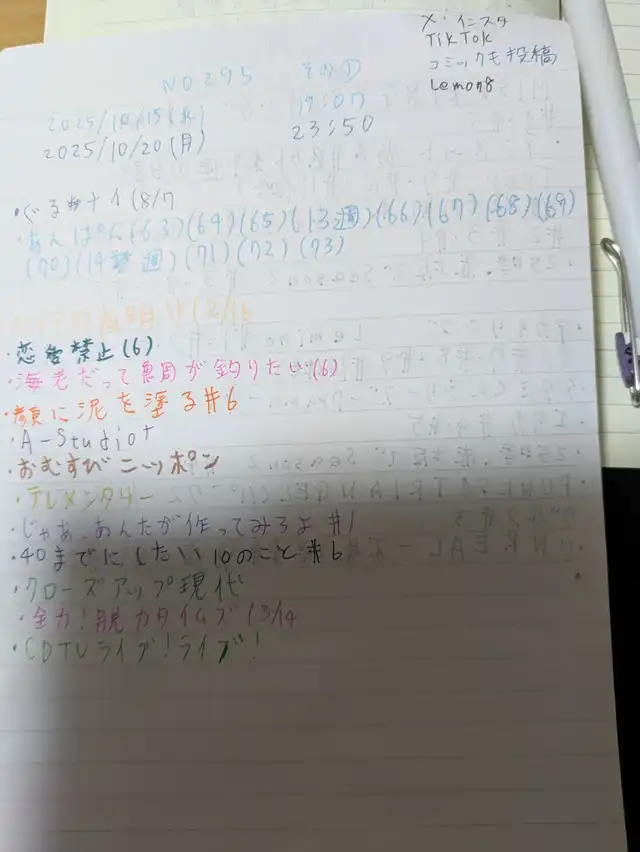 X・インスタ
TikTok
コミックも投稿
Lemon8
NO295 その①
2025/10/15(水) 19:07
2025/10/20(月) 23:50
・ぐるナイ(8/7
・あんぱん(63)(64)(65)(13週)(66)(67)(68)(69)
(70)(14週)(71)(72)(73)
2/16
・恋愛禁止(6)
・海老だって鯛が釣りたい(6)
・顔に泥を塗る#6
・A-Studio+
・おむすびニッポン
・テレメンタリー
・じゃあ、あんたが作ってみろよ#1
・40までにしたい10のこと#6
・クローズアップ現代
・全力!脱力タイムズ(3/14
・CDTVライブ!ライブ!